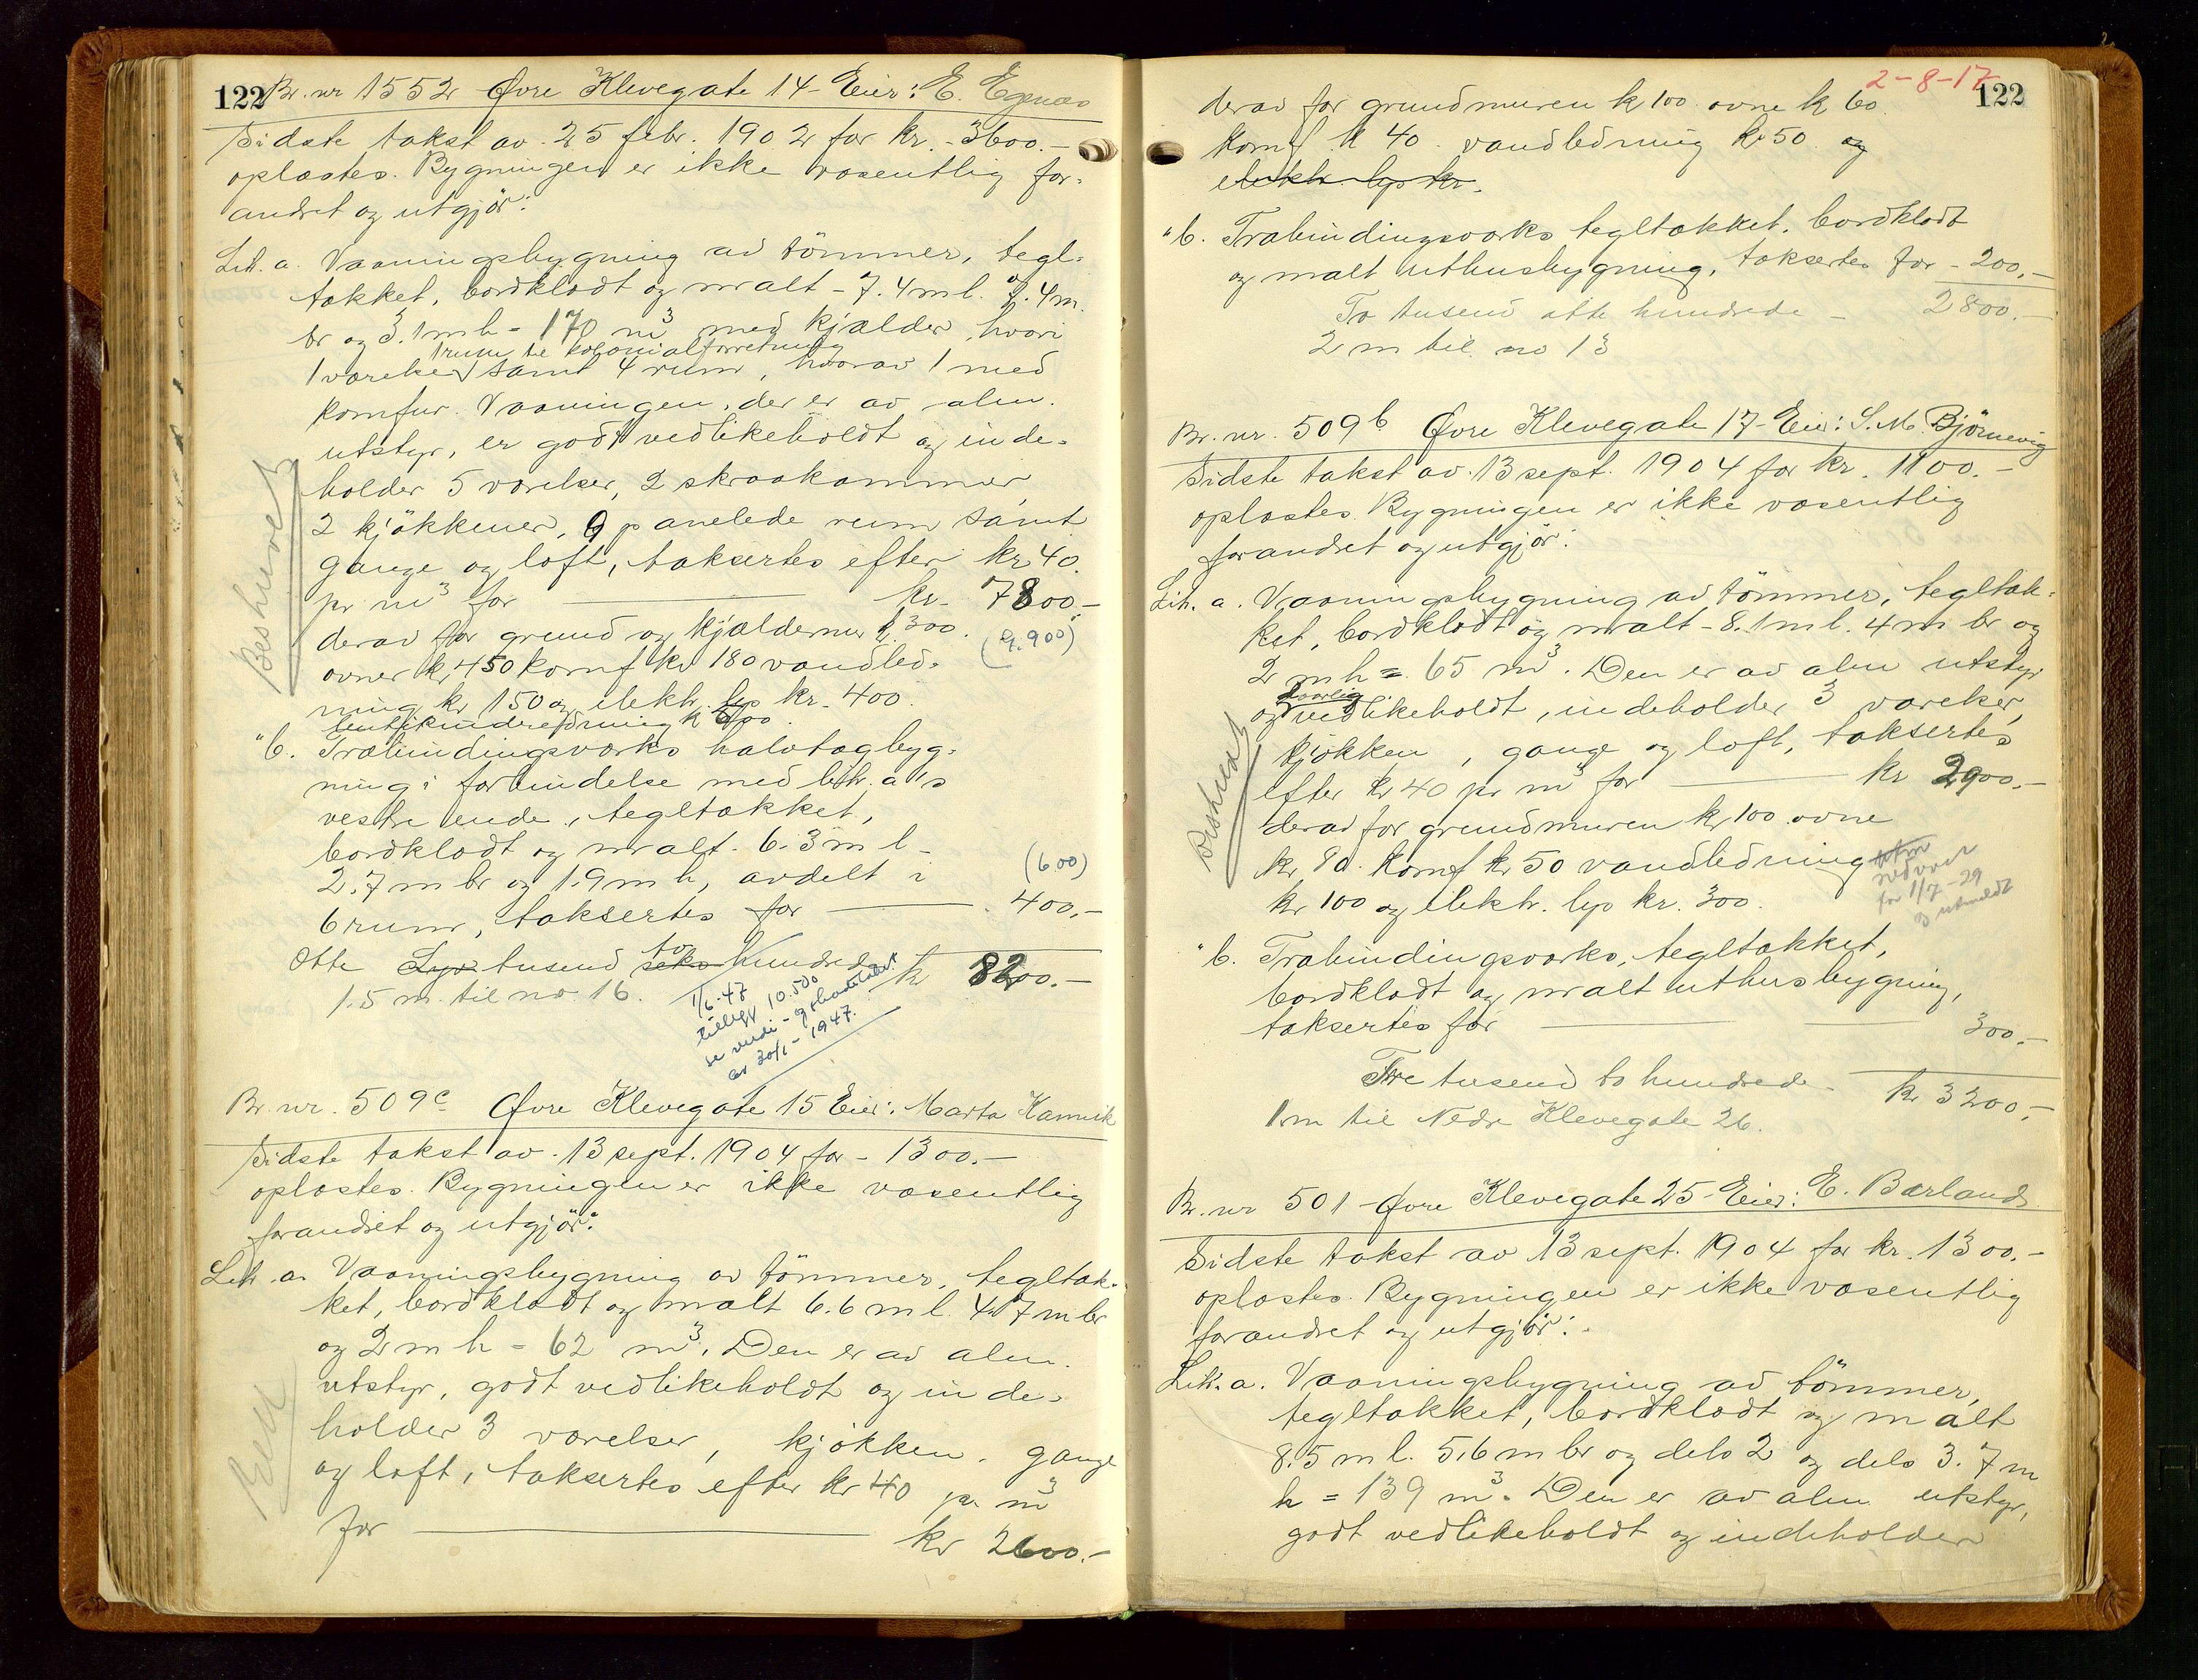 122 Br. nr 1552 Øvre Klevegate 14 - Eier: E. Egenæs
Sidste takst av 25 febr. 1902 for kr. - 3600.-
oplæstes. Bygningen er ikke væsentlig for-
andret og utgjör:
Lit. a. Vaaningsbygning av tömmer, tegl-
tækket, bordklædt og malt - 7.4 m l. 7.4 m.
br og 3.1 m h = 170 m³ med kjælder, hvori
1 rum til kolonialforretning
1 værelse samt 4 rum, hvorav 1 med
komfur. Vaaningen, der er av alm.
utstyr, er godt vedlikeholdt og inde-
holder 5 værelser, 2 skraakammer,
2 kjökkener, 9 panelede rum samt
gange og loft, taksertes efter kr 40.
pr m³ for kr. 7800.-
derav for grund og kjældermur k. 300. (9.900)
ovner kr 450 komf kr 180 vandled-
ning kr 150 og elektr. lys kr. 400.
butikinderedning k 600.
Beskrevet
" b. Træbindingsværks halvtagbyg-
ning i forbindelse med litr. a's
vestre ende, tegltækket,
bordklædt og malt. 6.3 m l -
2.7 m br og 1.9 m h, avdelt i (600)
6 rum, taksertes for 400.-
Otte Syv tusend to seks hundrede kr 8200.-
1.5 m. til no. 16.
1/6-47
tillegg 10.500
se verdi-
av 30/1 - 1947.
Br. nr. 509c Øvre Klevegate 15 Eier: Marta Kamvik
Sidste takst av 13 sept. 1904 for - 1300.-
oplæstes. Bygningen er ikke væsentlig
forandret og utgjör:
Litr. a. Vaaningsbygning av tömmer, tegltæk-
ket, bordklædt og malt 6.6 m l. 4.7 m br
og 2 m h = 62 m³. Den er av alm.
utstyr, godt vedlikeholdt og inde-
holder 3 værelser, kjökken, gange
og loft, taksertes efter kr 40 pr m³
for kr 2600.-
2-8-17
122
derav for grundmuren k 100 ovne k 60
Komf k 40. vandledning kr 50 og
elektr. lys kr.
" b. Træbindingsværks tegltækket, bordklædt
og malt uthusbygning, taksertes for - 200.-
To tusend otte hundrede - 2800.-
2 m til no 13
Br. nr. 509b Øvre Klevegate 17 - Eier: S. M. Björnevig
Sidste takst av 13 sept. 1904 for kr. 1100.-
oplæstes. Bygningen er ikke væsentlig
forandret og utgjör:
Lit. a. Vaaningsbygning av tömmer, tegltæk-
ket, bordklædt og malt - 8.1 m l. 4 m br og
2 m h = 65 m³. Den er av alm utstyr
daarlig
og vedlikeholdt, indeholder 3 værelser,
kjökken, gange og loft, taksertes
efter kr 40 pr m³ for kr 2900.-
derav for grundmuren kr 100 ovne
kr 80. Komf kr 50 vandledning
kr 100 og elektr. lys kr. 300.
for 1/7-29
og utmeldt
" b. Træbindingsværks, tegltækket,
bordklædt og malt uthusbygning,
taksertes for 300.-
Tre tusend to hundrede - kr 3200.-
1 m til Nedr Klevegate 26.
Br. nr 501 - Øvre Klevegate 25 - Eier: E. Bærland
Sidste takst av 13 sept. 1904 for kr. 1300.-
oplæstes. Bygningen er ikke væsentlig
forandret og utgjör:
Lit. a. Vaaningsbygning av tömmer,
tegltækket, bordklædt og malt
8.5 m l. 5.6 m br og dels 2 og dels 3.7 m
h = 139 m³. Den er av alm utstyr,
godt vedlikeholdt og indeholder